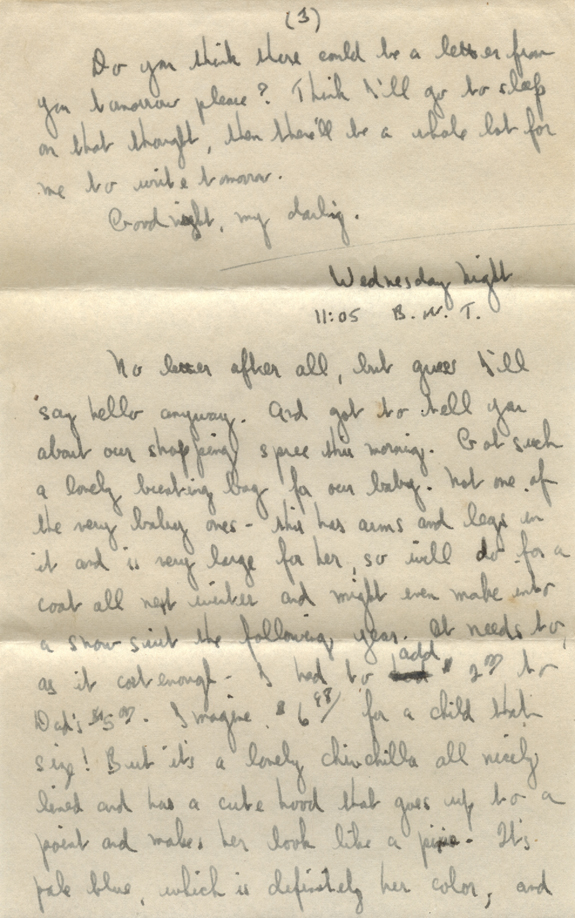 (3)
Do you think there could be a letter from
you tomorrow please? Think I'll go to sleep
on that thought, then there'll be a whole lot for
me to write tomorrow.
Good night, my darling.
Wednesday night
11:05 B.W.T.
No letter after all, but guess I'll
say hello anyway. And got to tell you
about our shopping spree this morning. Got such
a lovely bunting bag for our baby. Not one of
the very baby ones - this has arms and legs in
it and is very large for her, so will do for a
coat all next winter and might even make into
a snow suit the following year. It needs to,
as it cost enough - I had to add $2.00 to
Dad's $5.00. Imagine $6.98 for a child that
size! But it's a lovely chinchilla all nicely
lined and has a cute hood that goes up to a
point and makes her look like a pixie. It's
pale blue, which is definitely her color, and